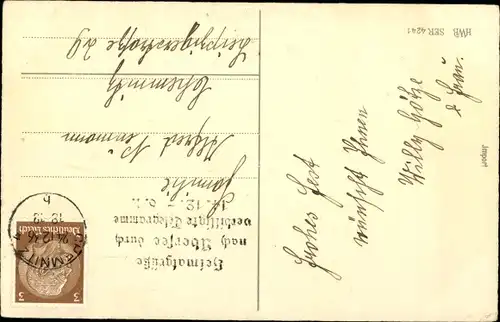 HWB SER 4241
Import
Frohes Fest
wünscht Ihnen
Willy Götze
& Frau
Familie
Alfred
Chemnitz
Heimatgrüße
nach Übersee durch
verbilligte Telegramme
14.12.- 6.1.
CHEMNITZ
24.12.36
Deutsches Reich
3 3